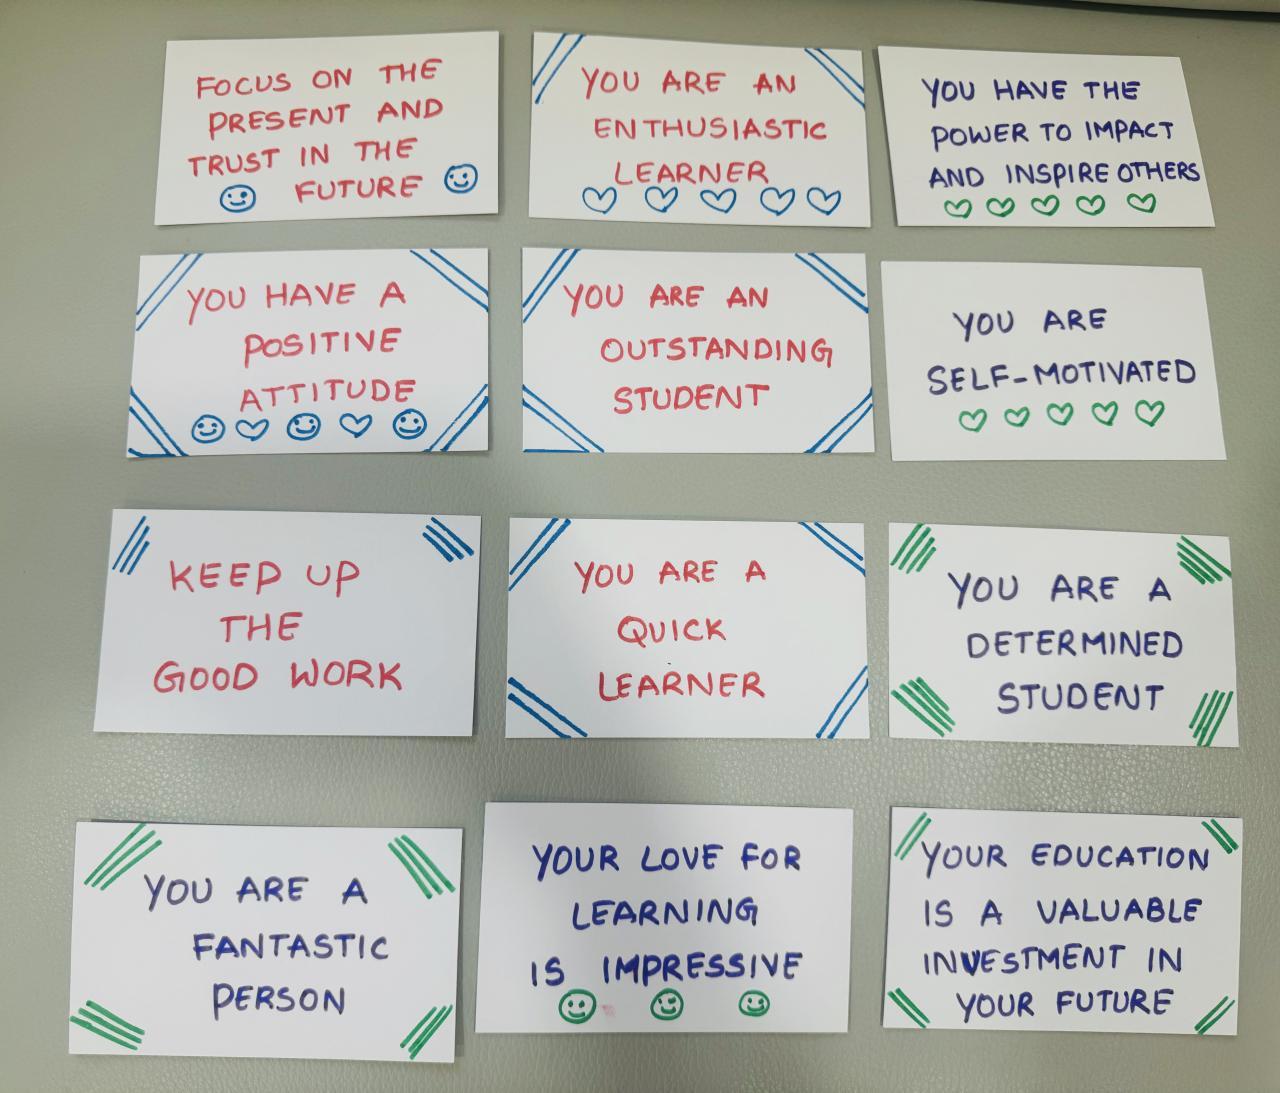 FOCUS ON THE
PRESENT AND
TRUST IN THE
FUTURE
YOU ARE AN
ENTHUSIASTIC
LEARNER
YOU HAVE THE
POWER TO IMPACT
AND INSPIRE OTHERS
YOU HAVE A
POSITIVE
ATTITUDE
YOU ARE AN
OUTSTANDING
STUDENT
YOU ARE
SELF-MOTIVATED
KEEP UP
THE
GOOD WORK
YOU ARE A
QUICK
LEARNER
YOU ARE A
DETERMINED
STUDENT
YOU ARE A
FANTASTIC
PERSON
YOUR LOVE FOR
LEARNING
IS IMPRESSIVE
YOUR EDUCATION
IS A VALUABLE
INVESTMENT IN
YOUR FUTURE